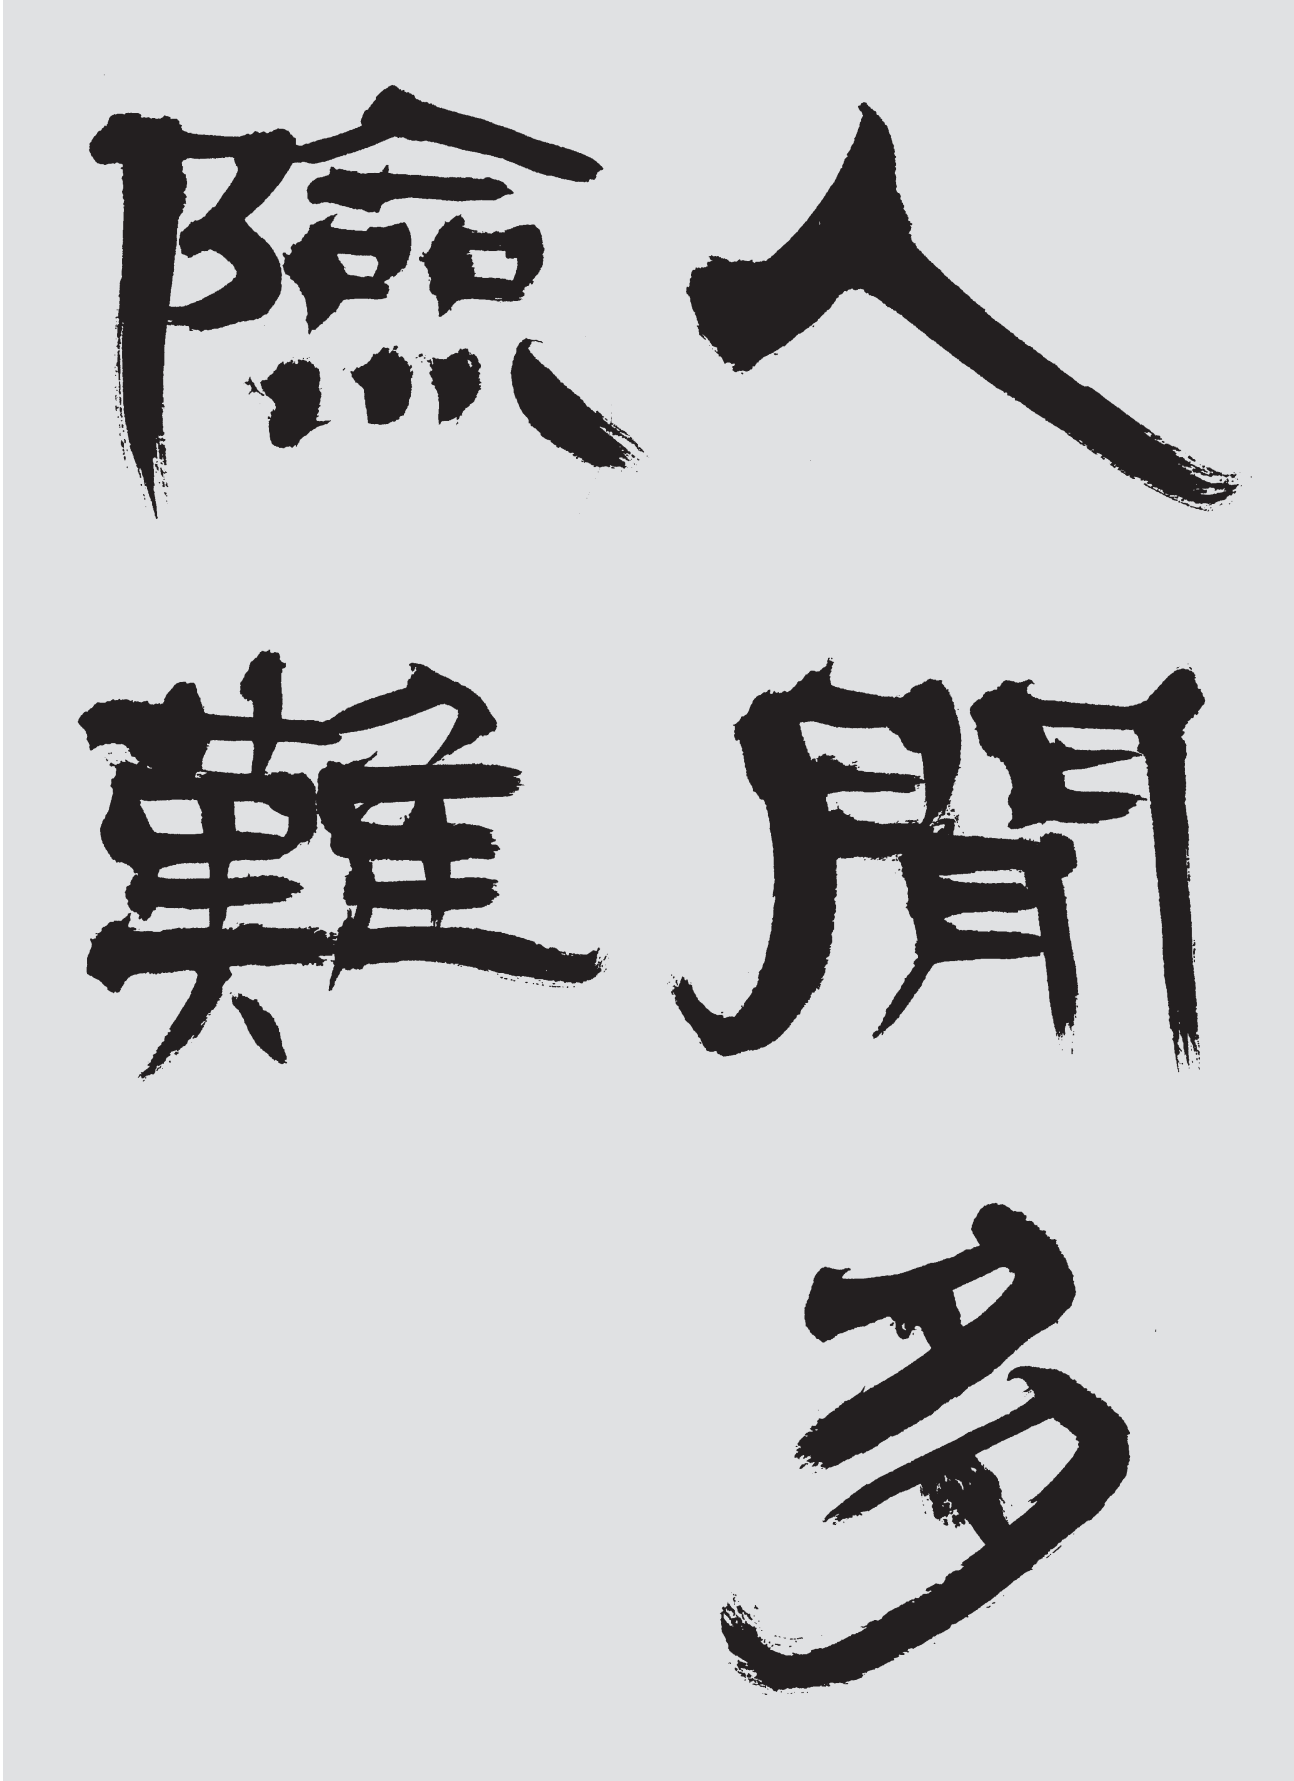 人閒多
險難